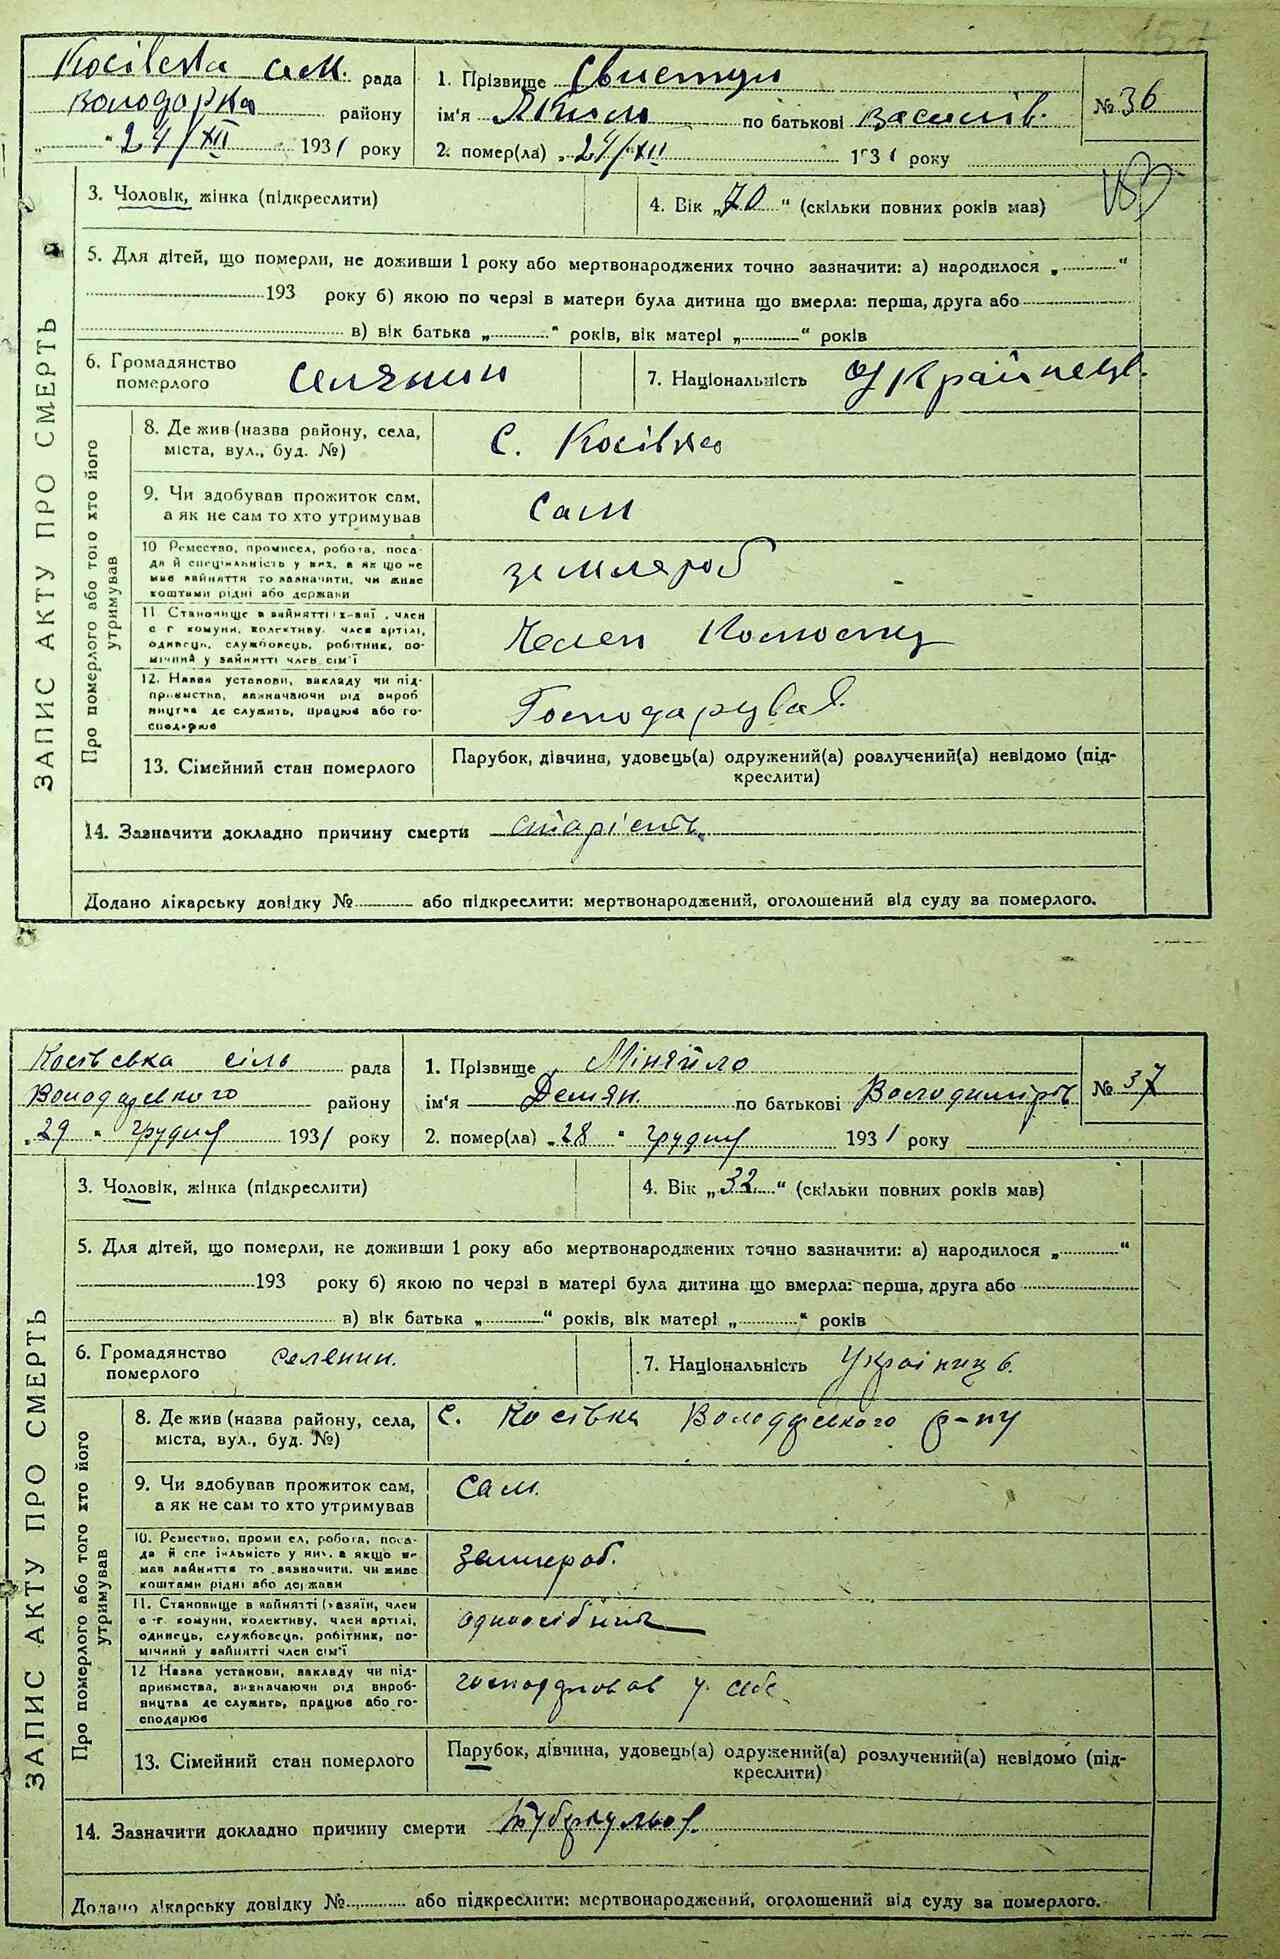 157
сіл. рада
Володарка району
" " 24/XII 1931 року
1. Прізвище Свистун
ім'я Яким по батькові Василів.
2. помер(ла) " 24/XII 1931 року
№ 36
ЗАПИС АКТУ ПРО СМЕРТЬ
3. Чоловік, жінка (підкреслити)
4. Вік „70" (скільки повних років мав)
5. Для дітей, що померли, не доживши 1 року або мертвонароджених точно зазначити: а) народилося „ "
193 року б) якою по черзі в матери була дитина що вмерла: перша, друга або
в) вік батька „ " років, вік матері „ " років
6. Громадянство померлого селянин
7. Національність Українец.
Про померлого або того хто його утримував
8. Де жив (назва району, села, міста, вул., буд. №) с. Косівка
9. Чи здобував прожиток сам, а як не сам то хто утримував сам
10 Ремество, промисел, робота, поса-
ди й спеціяльність у них, а як що не
мав зайняття то зазначити, чи живе
коштами рідні або держави
землероб
11 Становище в зайнятті, член
с г. комуни, колективу, член артілі,
одинець, службовець, робітник, по-
мічний у зайнятті член сім'ї
Член
12. Назва установи, закладу чи під-
приємства, зазначаючи рід вироб
ництва де служить, працює або го-
сподарює
Господарував.
13. Сімейний стан померлого
Парубок, дівчина, удовець(а) одружений(а) розлучений(а) невідомо (під-
креслити)
14. Зазначити докладно причину смерти старість
Додано лікарську довідку № або підкреслити: мертвонароджений, оголошений від суду за померлого.
Косівська сіль рада
Володарського району
„29" грудня 1931 року
1. Прізвище Міняйло
ім'я Демян по батькові Володимирів
2. помер(ла) „28" грудня 1931 року
№ 37
ЗАПИС АКТУ ПРО СМЕРТЬ
3. Чоловік, жінка (підкреслити)
4. Вік „32" (скільки повних років мав)
5. Для дітей, що померли, не доживши 1 року або мертвонароджених точно зазначити: а) народилося „ "
193 року б) якою по черзі в матері була дитина що вмерла: перша, друга або
в) вік батька „ " років, вік матері „ " років
6. Громадянство померлого селянин.
7. Національність
Про померлого або того хто його утримував
8. Де жив (назва району, села, міста, вул., буд. №) С. Косівка Володарського р-ну
9. Чи здобував прожиток сам, а як не сам то хто утримував сам.
10. Ремество, проми ел, робота, поса-
да й спе іяльність у них, а якщо не
мав зайняття то зазначити, чи живе
коштами рідні або держави
землероб.
11. Становище в зайнятті (хазяїн, член
с -г. комуни, колективу, член артілі,
одинець, службовець, робітник, по-
мічний у зайнятті член сім'ї
одноосібник
12 Назва установи, закладу чи під-
приємства, визначаючи рід вироб-
ництва де служить, працює або го-
сподарює
господарював у себе.
13. Сімейний стан померлого
Парубок, дівчина, удовець(а) одружений(а) розлучений(а) невідомо (під-
креслити)
14. Зазначити докладно причину смерти
Додано лікарську довідку № або підкреслити: мертвонароджений, оголошений від суду за померлого.